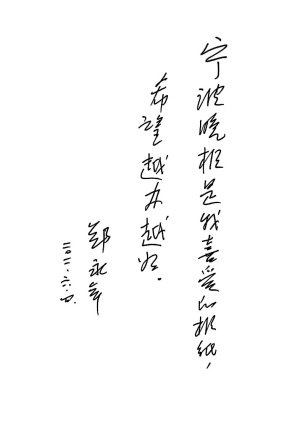 宁波晚报是我喜爱的报纸，
希望越办越好。
郑永年
二〇一一.六.四.